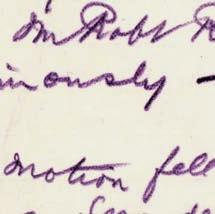 Dr Robt
inously —
motion fell